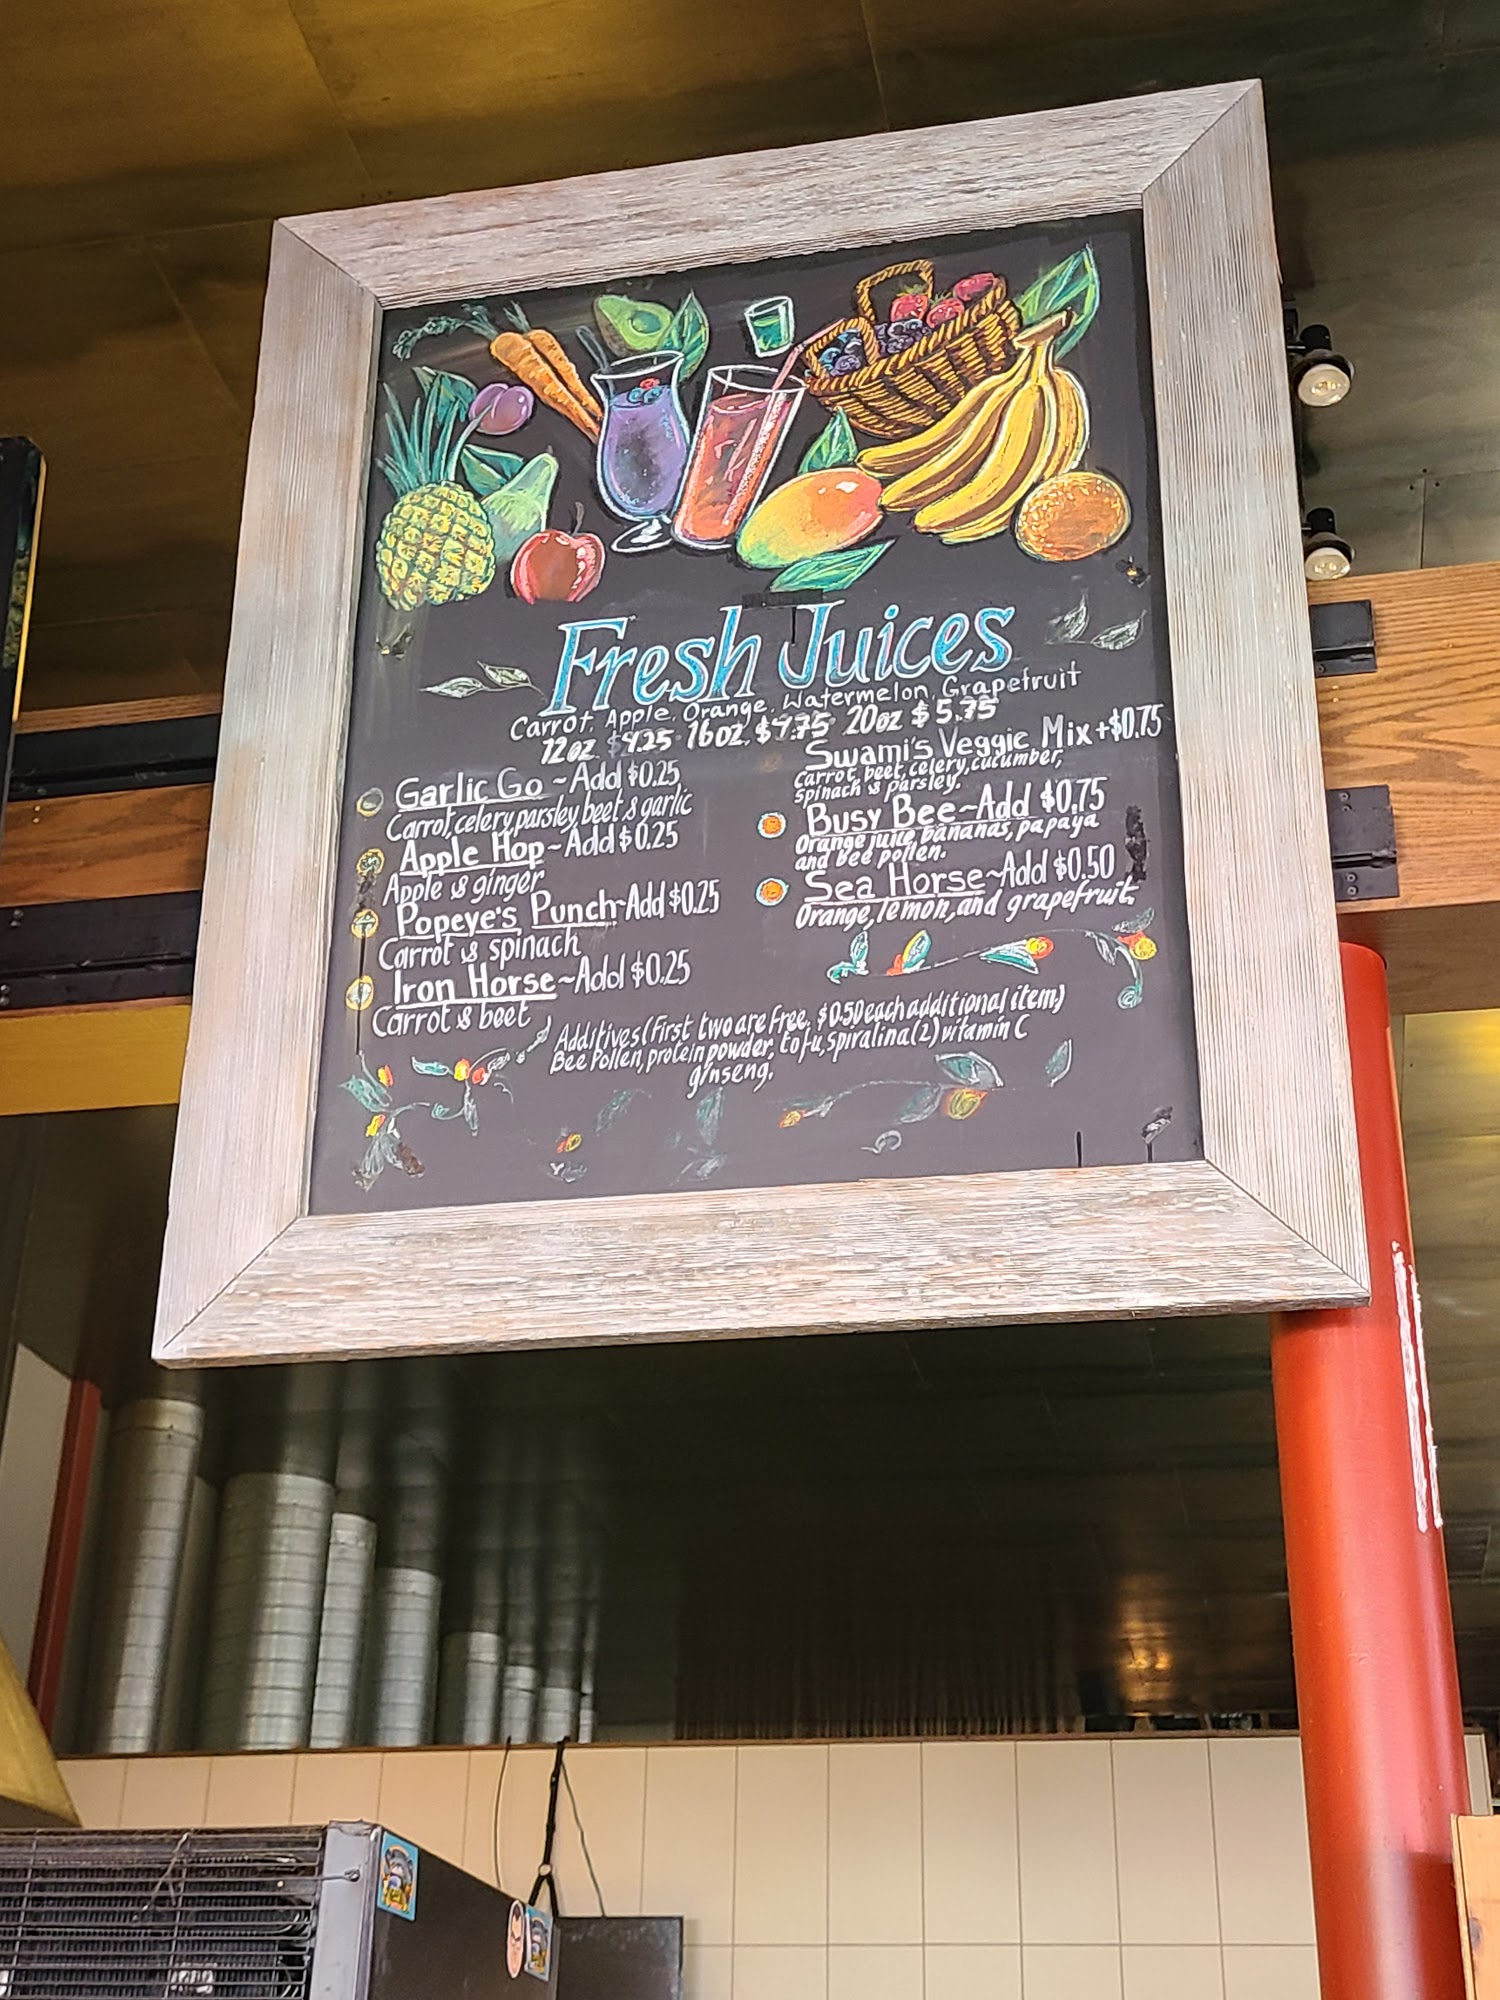 Fresh Juices
Carrot, Apple, Orange, Watermelon, Grapefruit
12oz $4.25 16oz. $4.75 20oz $5.75
Garlic Go ~ Add $0.25
Carrot, celery, parsley, beet & garlic
Apple Hop ~ Add $0.25
Apple & ginger
Popeye's Punch ~ Add $0.25
Carrot & spinach
Iron Horse ~ Add $0.25
Carrot & beet
Swami's Veggie Mix + $0.75
Carrot, beet, celery, cucumber,
spinach & parsley.
Busy Bee ~ Add $0.75
Orange juice, bananas, papaya
and bee pollen.
Sea Horse ~ Add $0.50
Orange, lemon, and grapefruit.
Additives (First two are free. $0.50 each additional item)
Bee Pollen, protein powder, tofu, spiralina (2) vitamin C
ginseng.